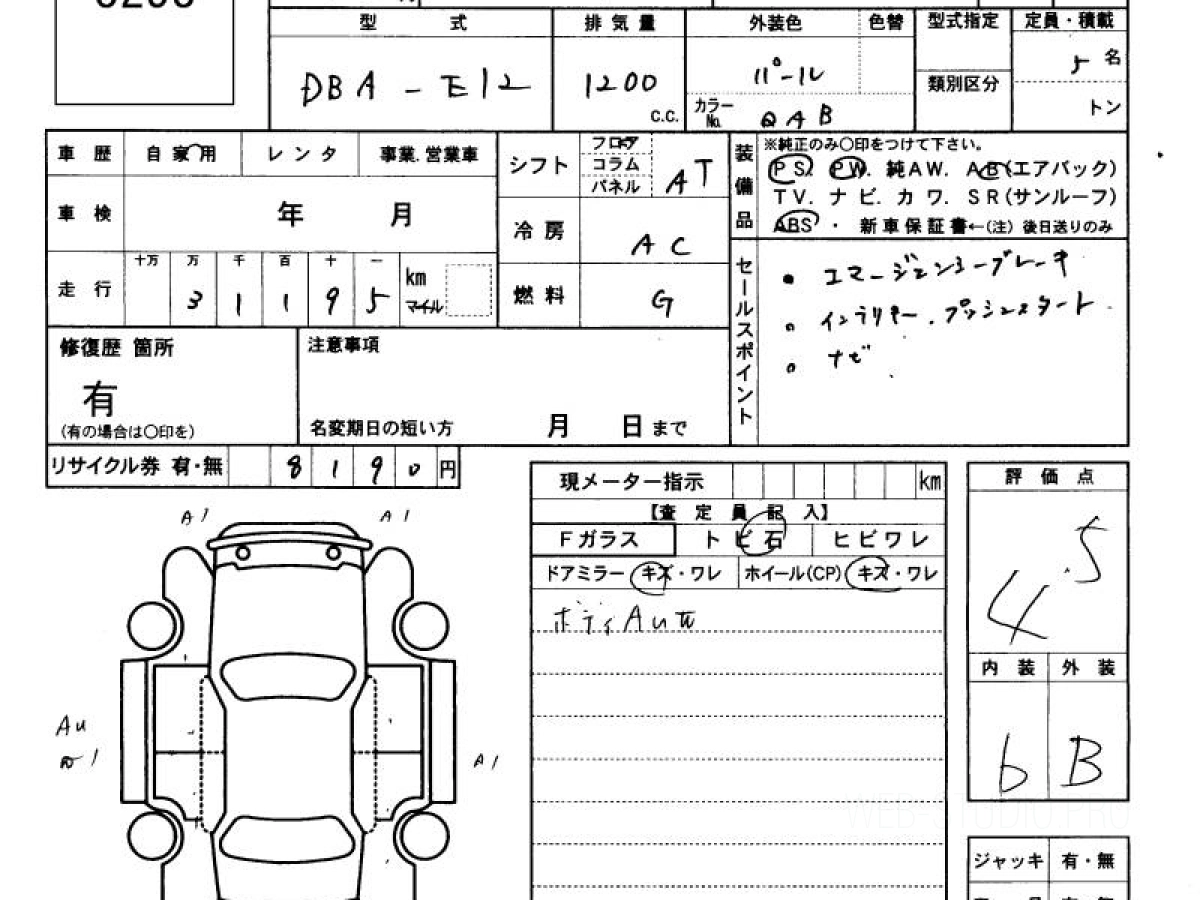 型 式 排気量 外装色 色替 型式指定 定員・積載
DBA-E12 1200 c.c. パール 5名
カラーNo. QAB 類別区分 トン
車歴 自家用 レンタ 事業.営業車 シフト フロア コラム パネル AT
装備品 ※純正のみ○印をつけて下さい。
PS. PW. 純AW. AB(エアバック)
TV. ナビ. カワ. SR(サンルーフ)
ABS ・ 新車保証書←(注) 後日送りのみ
車検 年 月 冷房 AC
走行 十万 万 千 百 十 一
31195 km マイル 燃料 G
セールスポイント
・エマージェンシーブレーキ
・インテリキー.プッシュスタート
・ナビ
修復歴 箇所 注意事項
有
(有の場合は○印を) 名変期日の短い方 月 日 まで
リサイクル券 有・無 8190円
現メーター指示 km 評価点
【査定員記入】
Fガラス トビ石 ヒビワレ
ドアミラー キズ・ワレ ホイール(CP) キズ・ワレ
4.5
A1 A1
ボディAu
内装 外装
b B
Au
1
A1
ジャッキ 有・無